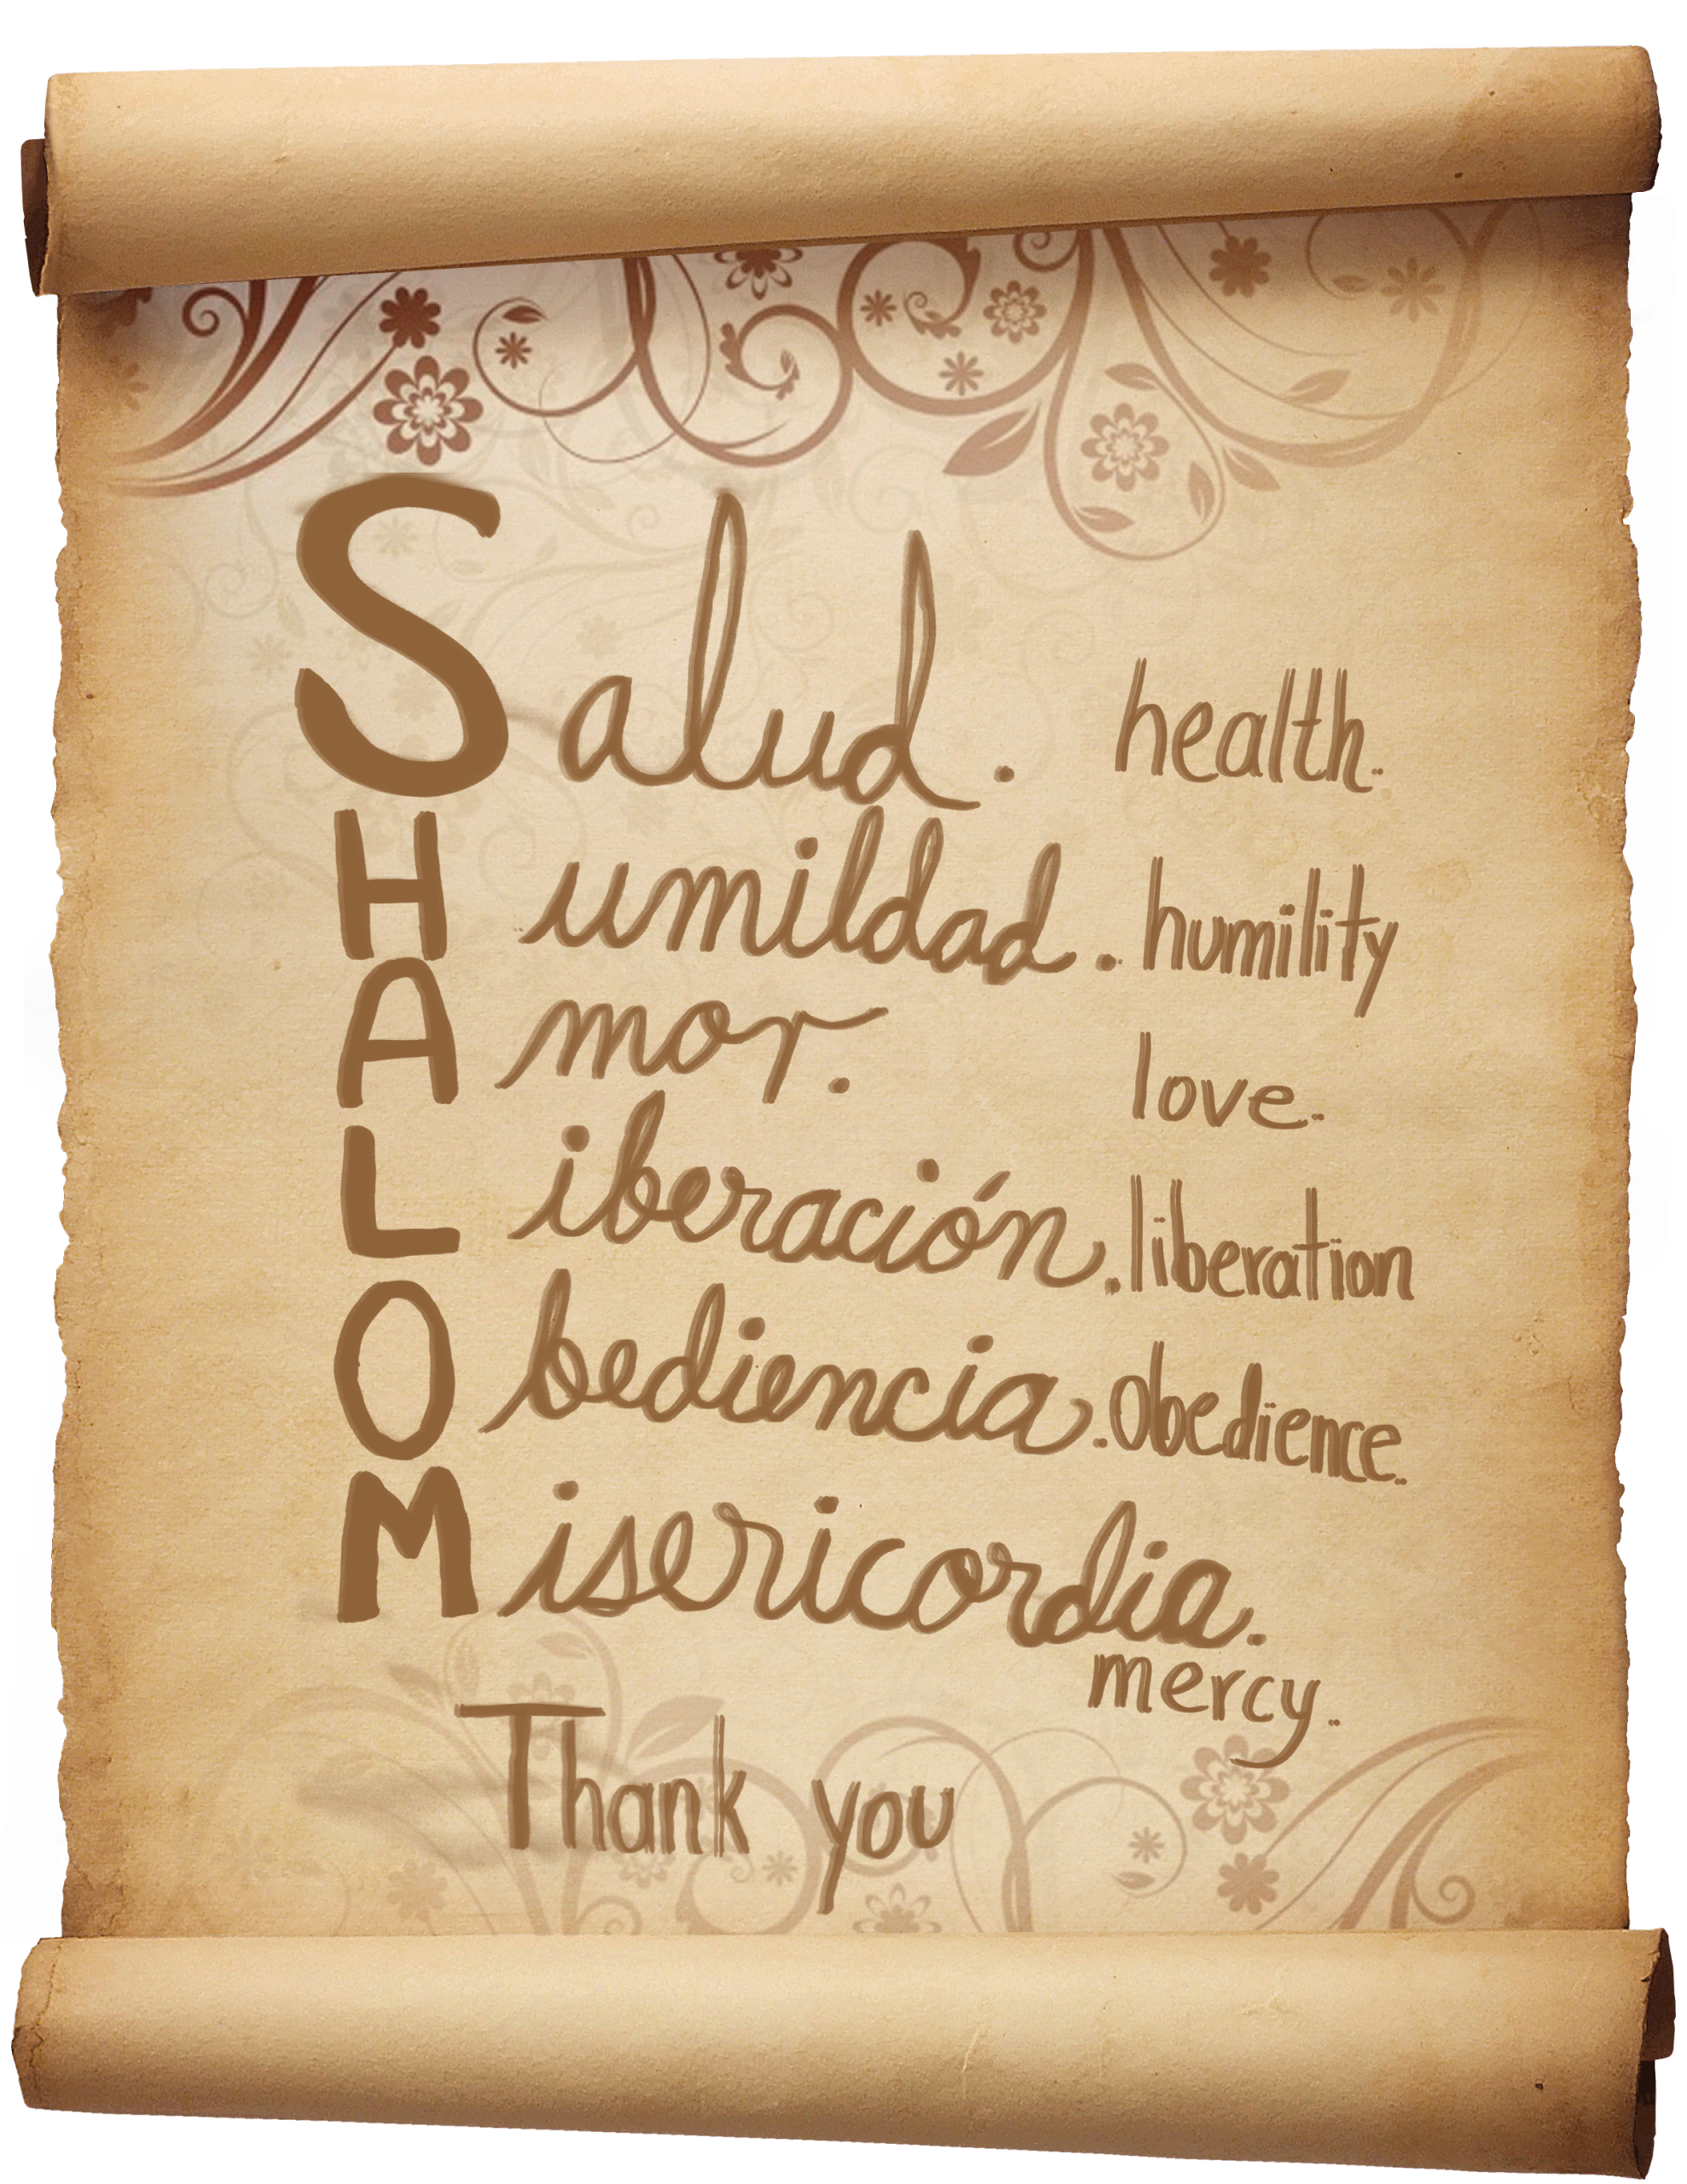 Salud. health.
Humildad. humility
Amor. love.
Liberación. liberation
Obediencia. obedience.
Misericordia.
mercy.
Thank you